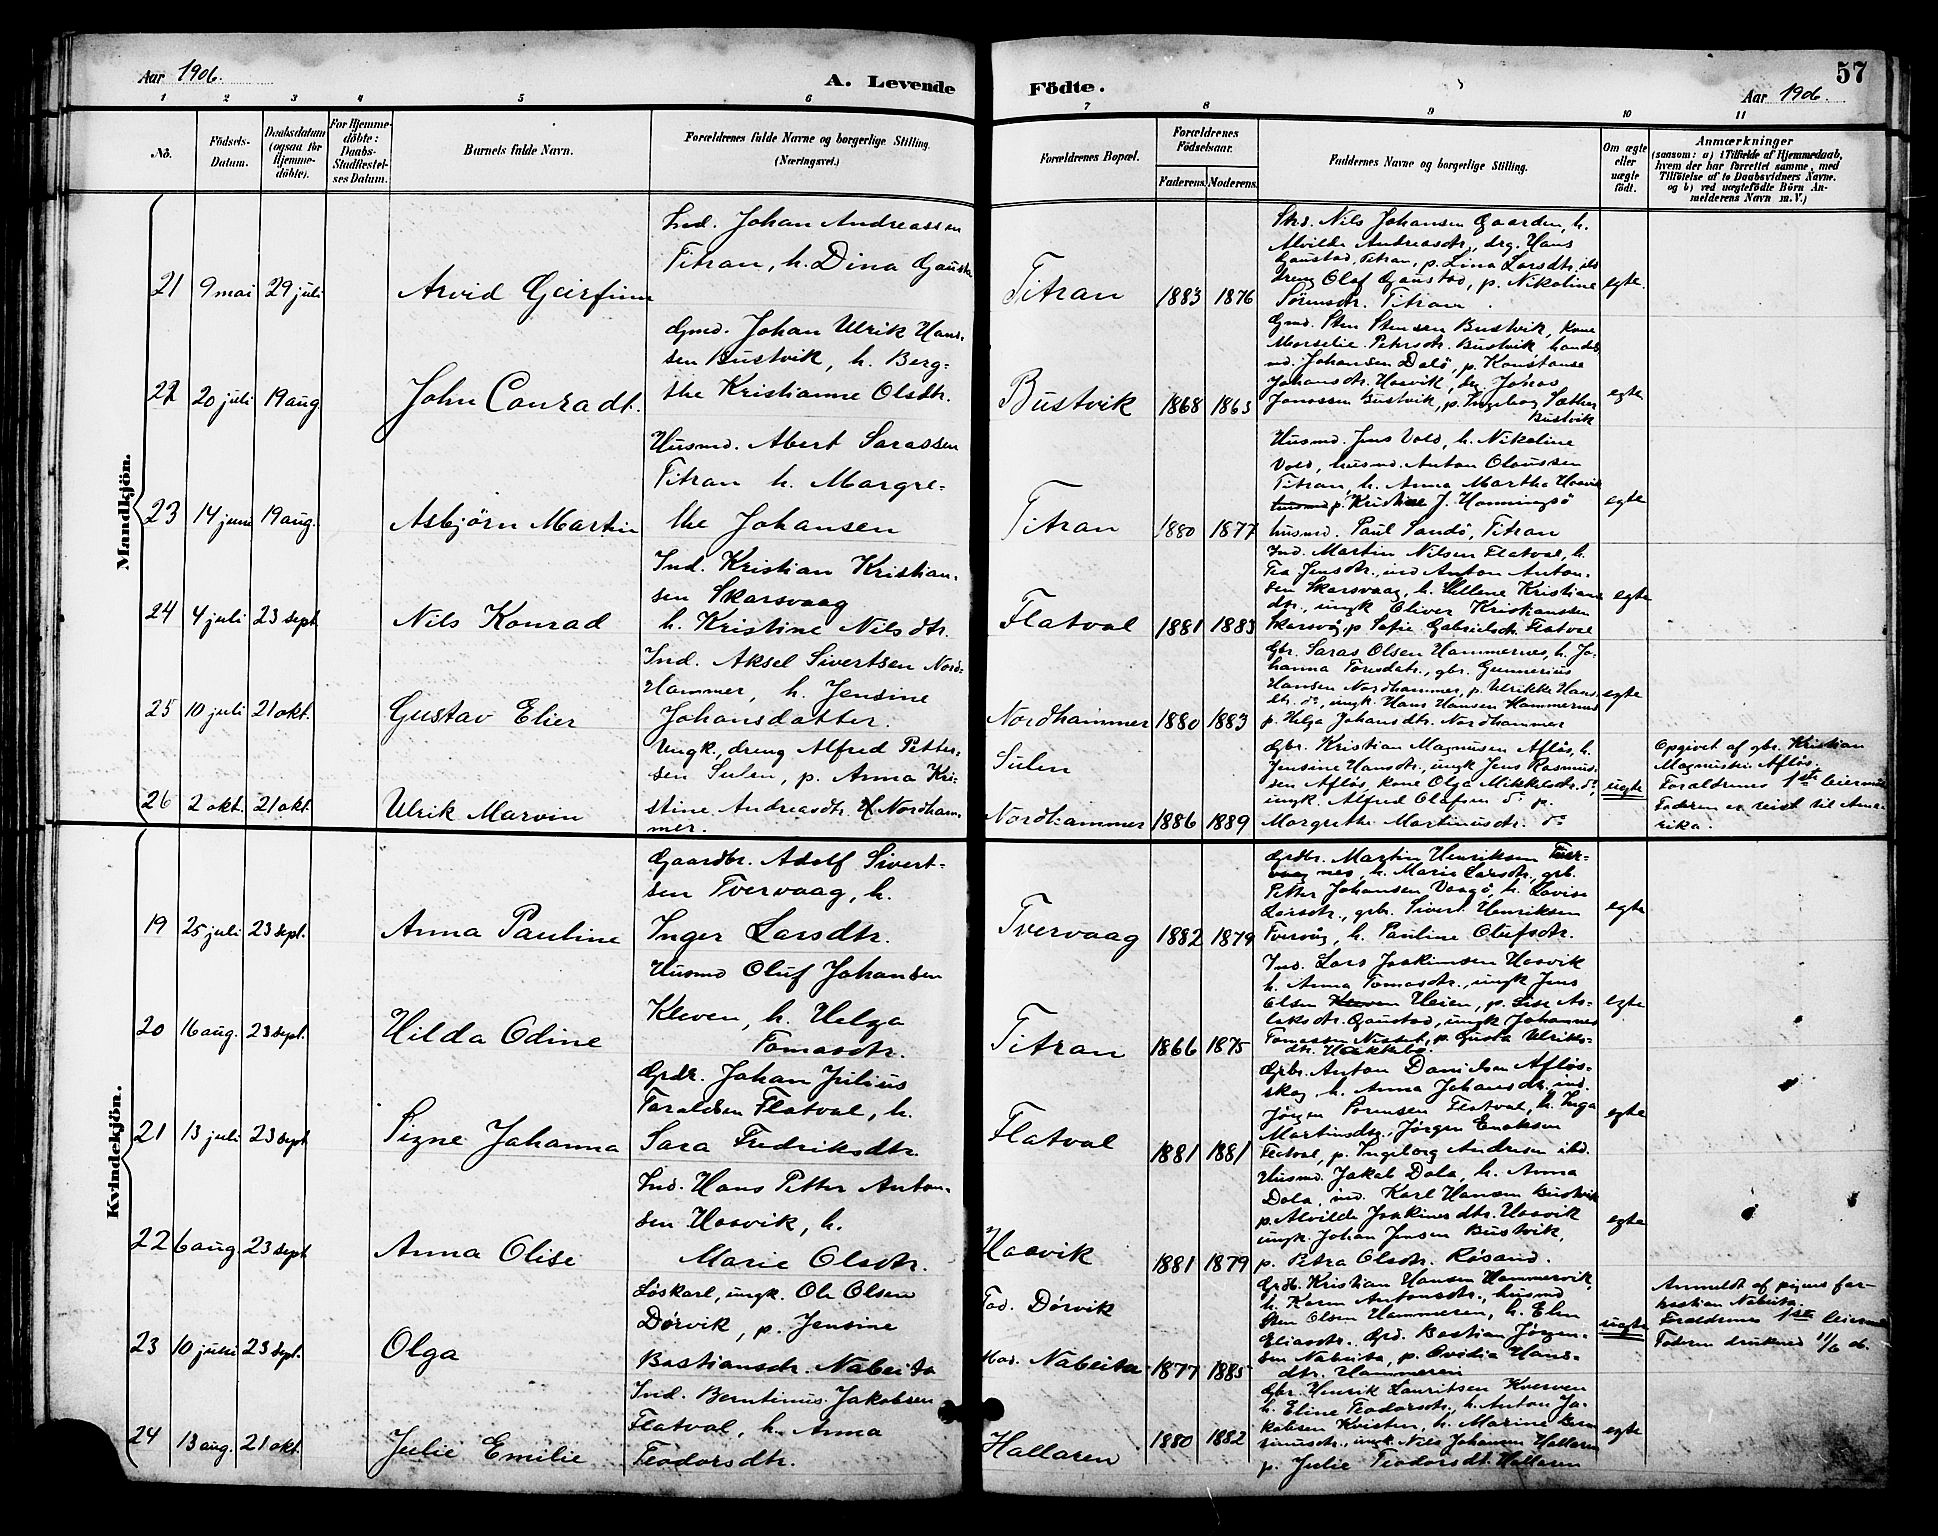 Aar 1906.
A. Levende
Födte.
Aar 1906.
57
1 2 3 4 5 6 7 8 9 10 11
No.
Födsels-
Datum.
Daabsdatum
(ogsaa for
Hjemme-
döbte).
For Hjemme-
döbte:
Daabs-
Stadfæstel-
ses Datum.
Barnets fulde Navn.
Forældrenes fulde Navne og borgerlige Stilling.
(Næringsvei.)
Forældrenes Bopæl.
Forældrenes
Födselsaar.
Faderens.
Moderens.
Faddernes Navne og borgerlige Stilling.
Om ægte
eller
uægte
födt.
Anmærkninger
(saasom: a) i Tilfælde af Hjemmedaab,
hvem der har forrettet samme, med
Tilföielse af to Daabsvidners Navne.
og b) ved uægtefödte Börn An-
melderens Navn m. V.)
Mandkjön.
21 9 mai 29 juli
Arvid Geirfinn
Ind. Johan Andreassen
Titran, h. Dina Gausta
Titran 1883 1876
Nils Johansen Gaarden, h.
Alvilde Andreasdtr., drg. Hans
Gaustad, Titran, p. Lina Larsdtr.
Olaf Gaustad, p. Nikoline
Sörensdtr. Titran.
egte.
22 20 juli 19 aug
John Conradt.
Gmd. Johan Ulrik Hans-
sen Bustvik, h. Berg-
the Kristianne Olsdtr.
Bustvik 1868 1863
Gmd. Sten Stensen Bustvik, kone
Marselie Petersdtr. Bustvik,
Johansen Dalö, p. Konstanse
Johansdtr. Hosvik, drg. Johas
Jonassen Bustvik, p. Ingeborg Sæther
Bustvik
egte
23 14 juni 19 aug.
Asbjörn Martin
Husmd. Abert Sarassen
Titran h. Margre-
the Johansen
Titran 1880 1877
Husmd. Jens Vold, h. Nikoline
Vold, husmd. Anton Olaussen
Titran, h. Anna Martha Hosvik
p. Kristine J. Hamningsö
husmd. Paul Sandö, Titran
egte
24 4 juli 23 sept
Nils Konrad
Ind. Kristian Kristian-
sen Skarsvaag
h. Kristine Nilsdtr.
Flatval 1881 1883
Ind. Martin Nilsen Flatval, h.
Tea Jensdtr., ind Anton Anton-
sen Skarsvaag, h. Hellene Kristians
dtr., ungk Oliver Kristianssen
Skarsvåg, p Sofie Gabrielsdtr. Flatval
egte
25 10 juli 21 okt.
Gustav Elier
Ind. Aksel Sivertsen Nord-
Hammer, h. Jensine
Johansdatter.
Nordhammer 1880 1883
Gbr. Saras Olsen Hammernes, h. Jo-
hanna Tomsdtr., gbr. Gunnerius
Hansen Nordhammer, p. Ulrikke Hans-
dtr. do, ungk Hans Hansen Hammernes
p. Helga Johansdtr. Nordhammer
egte
26 2 okt. 21 okt.
Ulrik Marvin
Ungk., dreng Alfred Petter-
sen Sulen, p. Anna Kri-
stine Andreasdtr. Nordham-
mer.
Sulen
Nordhammer 1886 1889
Gbr. Kristian Magnusen Aflös, h.
Jensine Hansdtr., ungk Jens Rasmus-
sen Aflös, kone Olga Mikkelsdtr. do,
ungk. Alfred Olafsen do p.
Margrethe Martinusdtr. do
uegte
Opgivet af gbr. Kristian
Magnussen Aflös.
Foraldrenes 1ste leiermaal
Faderen er reist til Ame-
rika.
Kvindekjön.
19 25 juli 23 sept.
Anna Pauline
Gaardbr. Adolf Sivert-
sen Tvervaag, h.
Inger Larsdtr.
Tvervaag 1882 1879
Grdbr. Martin Henriksen
nes, h. Marie Larsdtr, grb.
Petter Johansen Vaagö, h. Lovise
Larsdtr., grbr. Sivert Henriksen
Tvervåg, h. Pauline Olufsdtr.
egte
20 16 aug. 23 sept.
Hilda Odine
Husmd Oluf Johansen
Kleven, h. Helga
Tomasdtr.
Titran 1866 1875
Ind. Lars Joakimsen Hosvik
h. Anna Tomasdtr., ungk Jens
Olsen Heien, p. Lise As-
laksdtr. Gaustad, ungk Johannes
Tomassen Nesset, p. Gusta Ulriks-
dtr.
egte
21 13 juli 23 sept
Signe Johanna
Grdr. Johan Julius
Taraldsen Flatval, h.
Sara Fredriksdtr.
Flatval 1881 1881
Grbr. Anton Danielsen Aflös-
skog, h. Anna Johansdtr. ind.
Jörgen Sörensen Flatval, h. Inga
Martinsdtr, Jörgen Enoksen
Flatval, p. Ingeborg Andersen ibd.
egte
22 6 aug 23 sept
Anna Olise
Ind. Hans Petter Anton-
sen Hosvik, h.
Marie Olsdtr.
Hosvik 1881 1879
Husmd. Jakob Dala, h. Anna
Dala, ind. Karl Hansen Bustvik
p. Alvilde Joakimsdtr. Hosvik
ungk. Johan Jensen Bustvik,
p. Petra Olsdtr. Rösand.
egte
23 10 juni 23 sept.
Olga
Löskarl, ungk. Ole Olsen
Dörvik, p. Jensine
Bastiansdtr. Nabeita
Fad. Dörvik
Mod. Nabeita 1877 1885
Grdb. Kristian Hansen Hammervik,
h. Karen Antonsdtr., husmd
Sten Olsen Hammeren, h. Elen
Eliasdtr. Grd. Bastian Jörgen-
sen Nabeita, p. Ovidia Hans-
dtr. Hammeren
uegte
Anmeldt af pigens far
Bastian Nabeita.
Foraldrenes 1ste leiermaal
Faderen drukned 11/6 06.
24 13 aug. 21 okt.
Julie Emilie
Ind. Berntinus Jakobsen
Flatval, h. Anna
Teodorsdtr.
Hallaren 1880 1882
Gbr. Henrik Lauritsen Kverven
h. Eline Teodorsdtr., h. Anton Ja-
kobsen Kvisten, h. Marine
ungk. Nils Johansen Hallaren
p. Julie Teodorsdt. Hallaren
egte